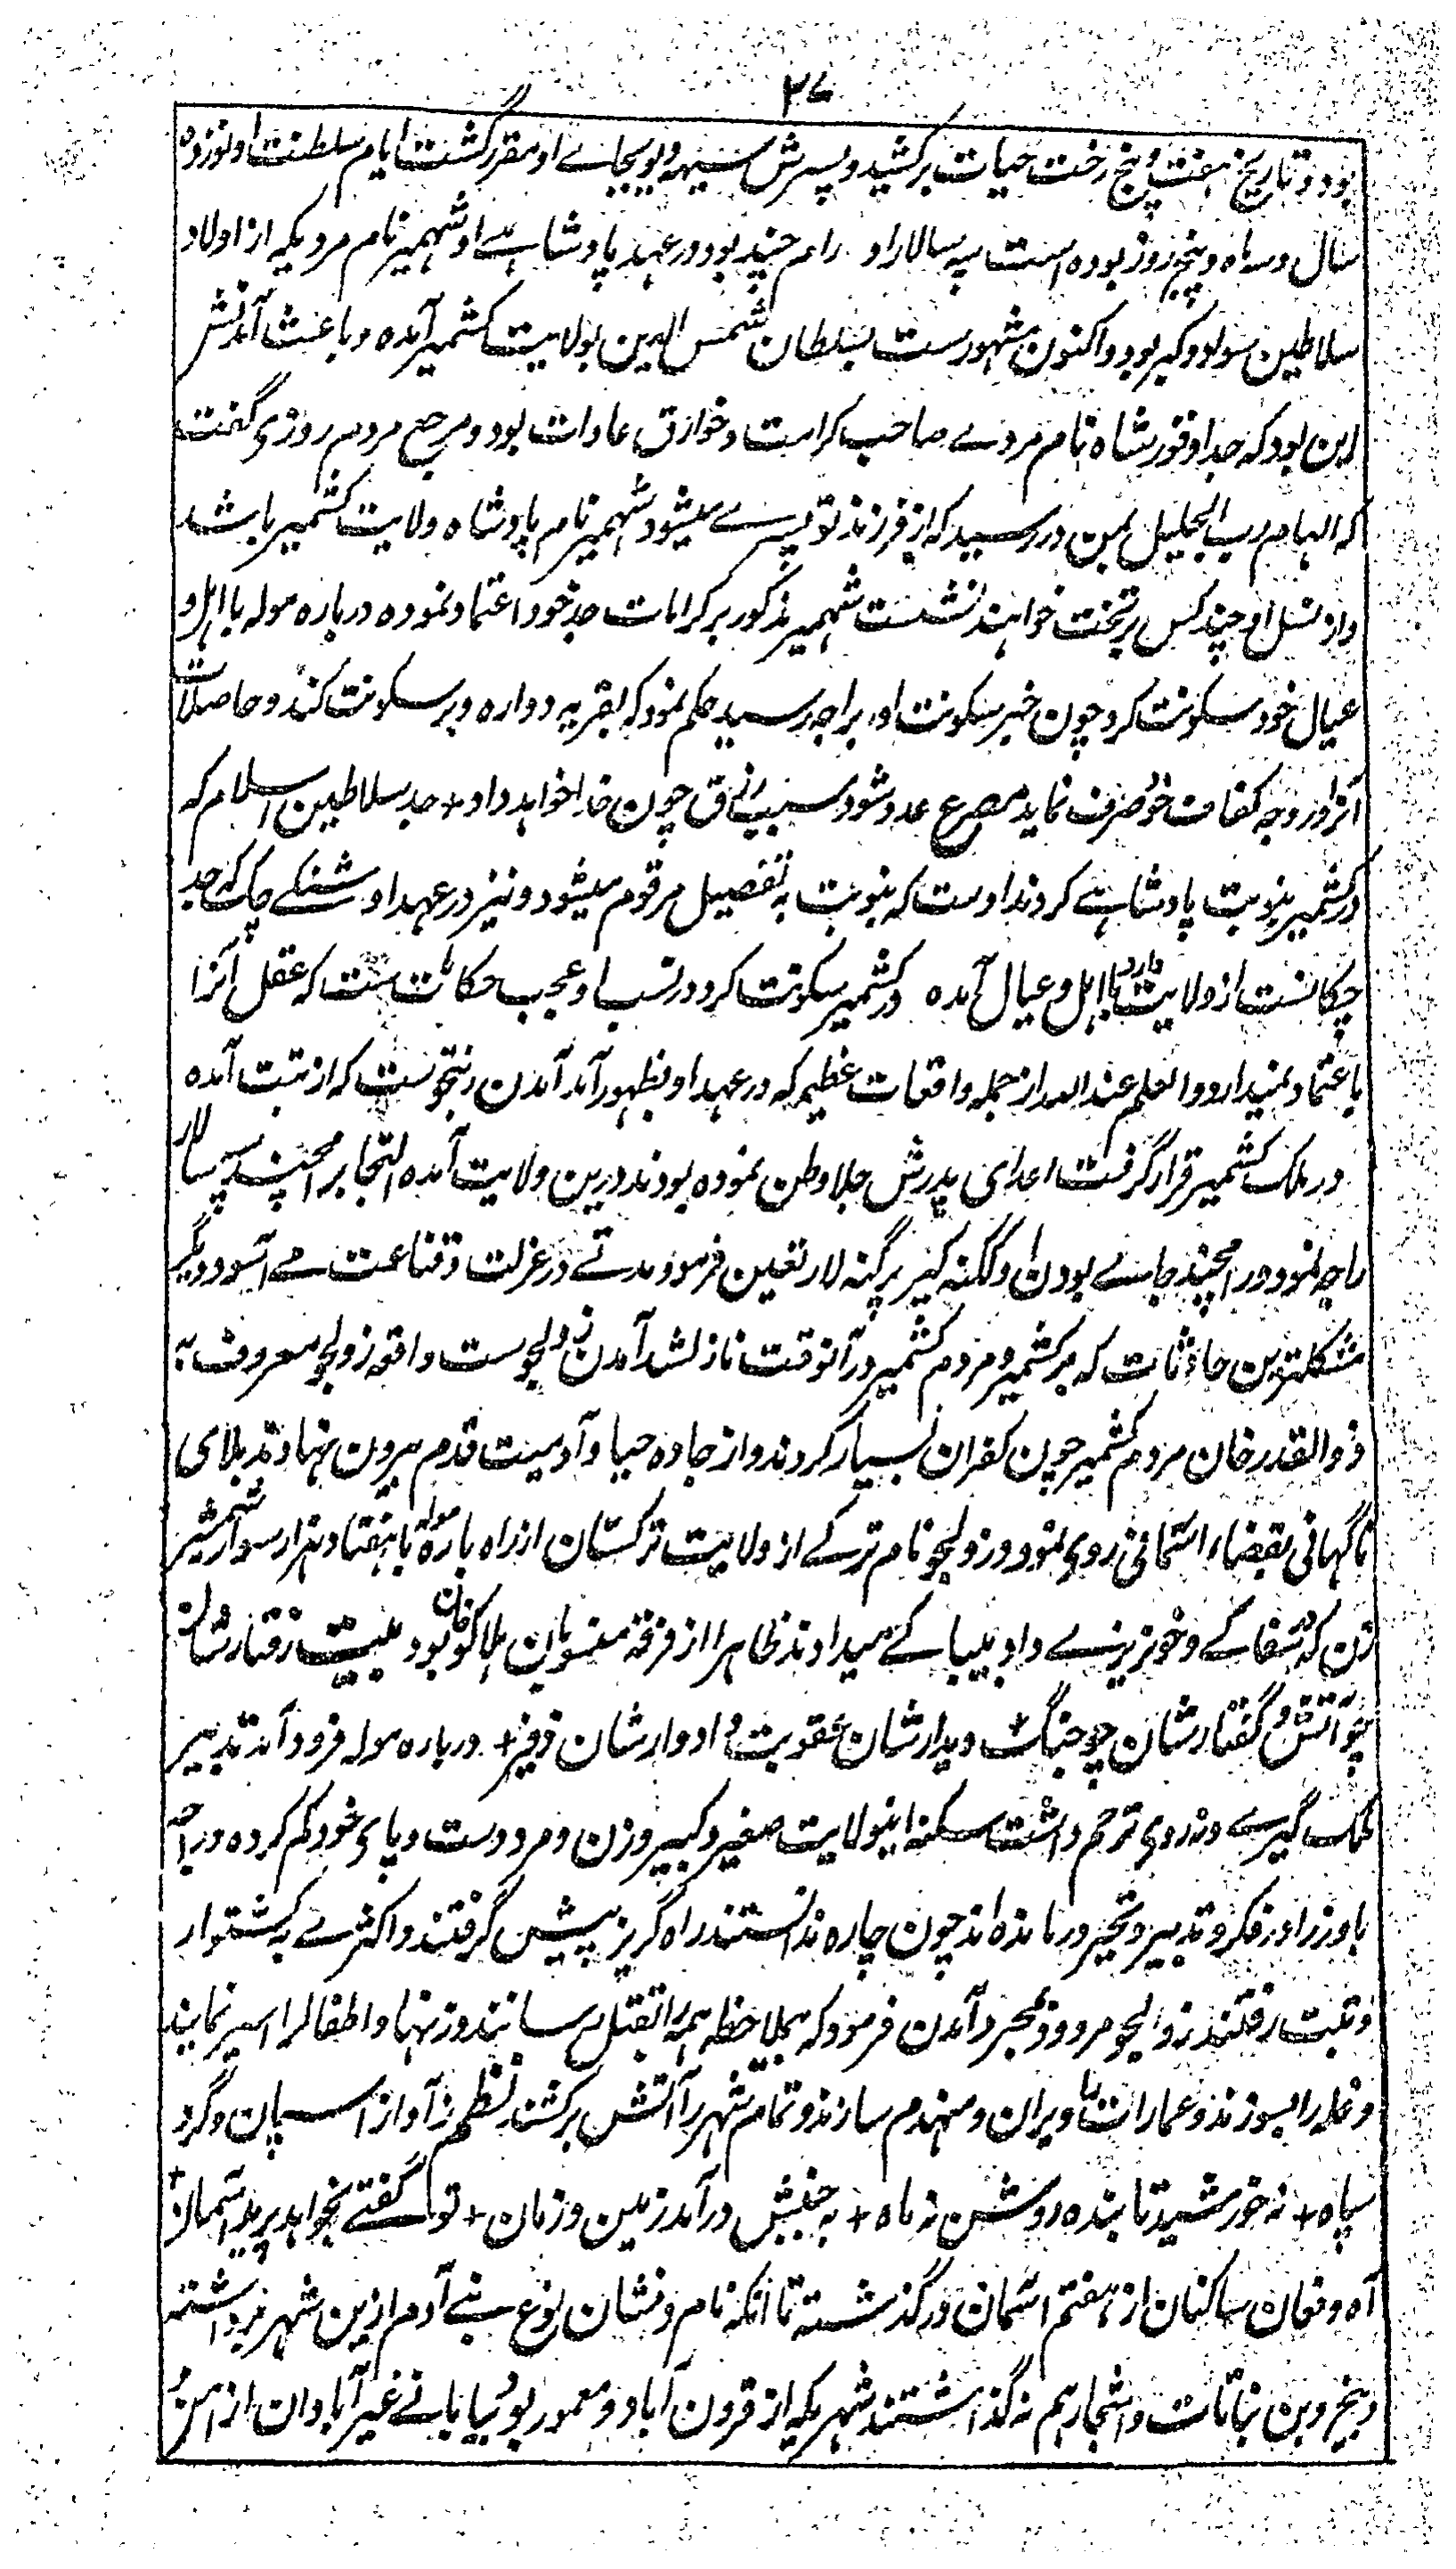 ۳۷
بود و تاریخ هفت و پنج رخت حیات برکشید و پسرش سیهه دیو بجاے او مقرر گشت ایام سلطنت او نوزده
سال و سه ماه و پنج روز بوده است سپه سالار او رام چند بود و در عهد پادشاہے او شهمیر نام مردیکه از اولاد
سلاطین سواد و کبر بود و اکنون مشهورست بسلطان شمس الدین بولایت کشمیر آمده و باعث آمدنش
این بود که جد او قور شاه نام مردے صاحب کرامت و خوارق عادات بود و مرجع مردم روزی گفت
که الهام رب الجلیل بمن در رسید که از فرزند تو پسرے میشود شهمیر نام پادشاه ولایت کشمیر باشد
و از نسل او چند کس بر تخت خواهند نشست شهمیر مذکور بر کرامات جد خود اعتماد نموده در باره موله با اهل و
عیال خود سکونت کرد چون خبر سکونت او براجه رسید حکم نمود که بقریه دواره ویر سکونت کند و حاصلات
آنرا در وجه کفاف خود صرف نماید مصرع عدو شود سبب رزق چون خدا خواهد داد + جد سلاطین اسلام که
در کشمیر بنوبت پادشاہے کردند اوست که بنوبت به تفصیل مرقوم میشود و نیز در عهد او شنکے چک که جد
چکانست از ولایت دارد با اهل و عیال آمده در کشمیر سکونت کرد در نسب او عجب حکایات ست که عقل آنرا
باعتماد نمیدارد و العلم عند الله از جمله واقعات عظیم که در عهد او بظهور آمد آمدن رنتجوست که از تبت آمده
در ملک کشمیر قرار گرفت اعدای پدرش جلا وطن نموده بودند درین ولایت آمده التجا برامچند سپه سالار
راجه نموده رامچند جاے بودن او گگنه گیر پرگنه لار تعین فرمود مدتے در عزلت و قناعت مے آسود دیگر
مشکلترین حادثات که بر کشمیر و مردم کشمیر در آنوقت نازل شد آمدن زولجوست واقعه زولجو معروف به
ذوالقدر خان مردم کشمیر چون کفران بسیار کردند و از جاده حیا و آدمیت قدم بیرون نهادند بلای
ناگهانی بقضاء آسمانی روی نمود و زولجو نام ترکے از ولایت ترکستان از راه باره موله با هفتاد هزار سوار شمشیر
زن که در سفاکے و خونریزے داد بیباکے میدادند ظاهرا از فرقه منسوبان هلاکو خان بود بیت رفتار شان
چو آتش و گفتار شان چو جنگ دیدار شان عقوبت و ادوار شان زفیر + در باره موله فرود آمد تدبیر
ملک گیرے و نه روی ترحم داشت سکنه اینولایت صغیر و کبیر و زن و مرد دست و پای خود گم کرده و راجه
با وزرا در فکر و تدبیر و تحیر در مانده اند چون چاره ندانستند راه گریز پیش گرفتند و اکثرے به کشتوار
و تبت رفتند زولجو مردود بمجرد آمدن فرمود که بملاحظه همه را بقتل رسانند و زنها و اطفال را اسیر نمایند
و غله را بسوزند و عمارات را ویران و منهدم سازند و تمام شهر را آتش برکشند نظم ز آواز اسپان و گرد
سپاه + نه خورشید تابنده روشن نه ماه + به جنبش در آمد زمین و زمان + تو گفتے بخواهد پرید آسمان +
آه و فغان ساکنان از هفتم آسمان در گذشته تا آنکه نام و نشان نوع بنے آدم ازین شهر برداشته
و بیخ و بن نباتات و اشجار هم نه گذاشتند شهریکه از قرون آباد و معمور بود بیابانے غیر آبادان از امن و